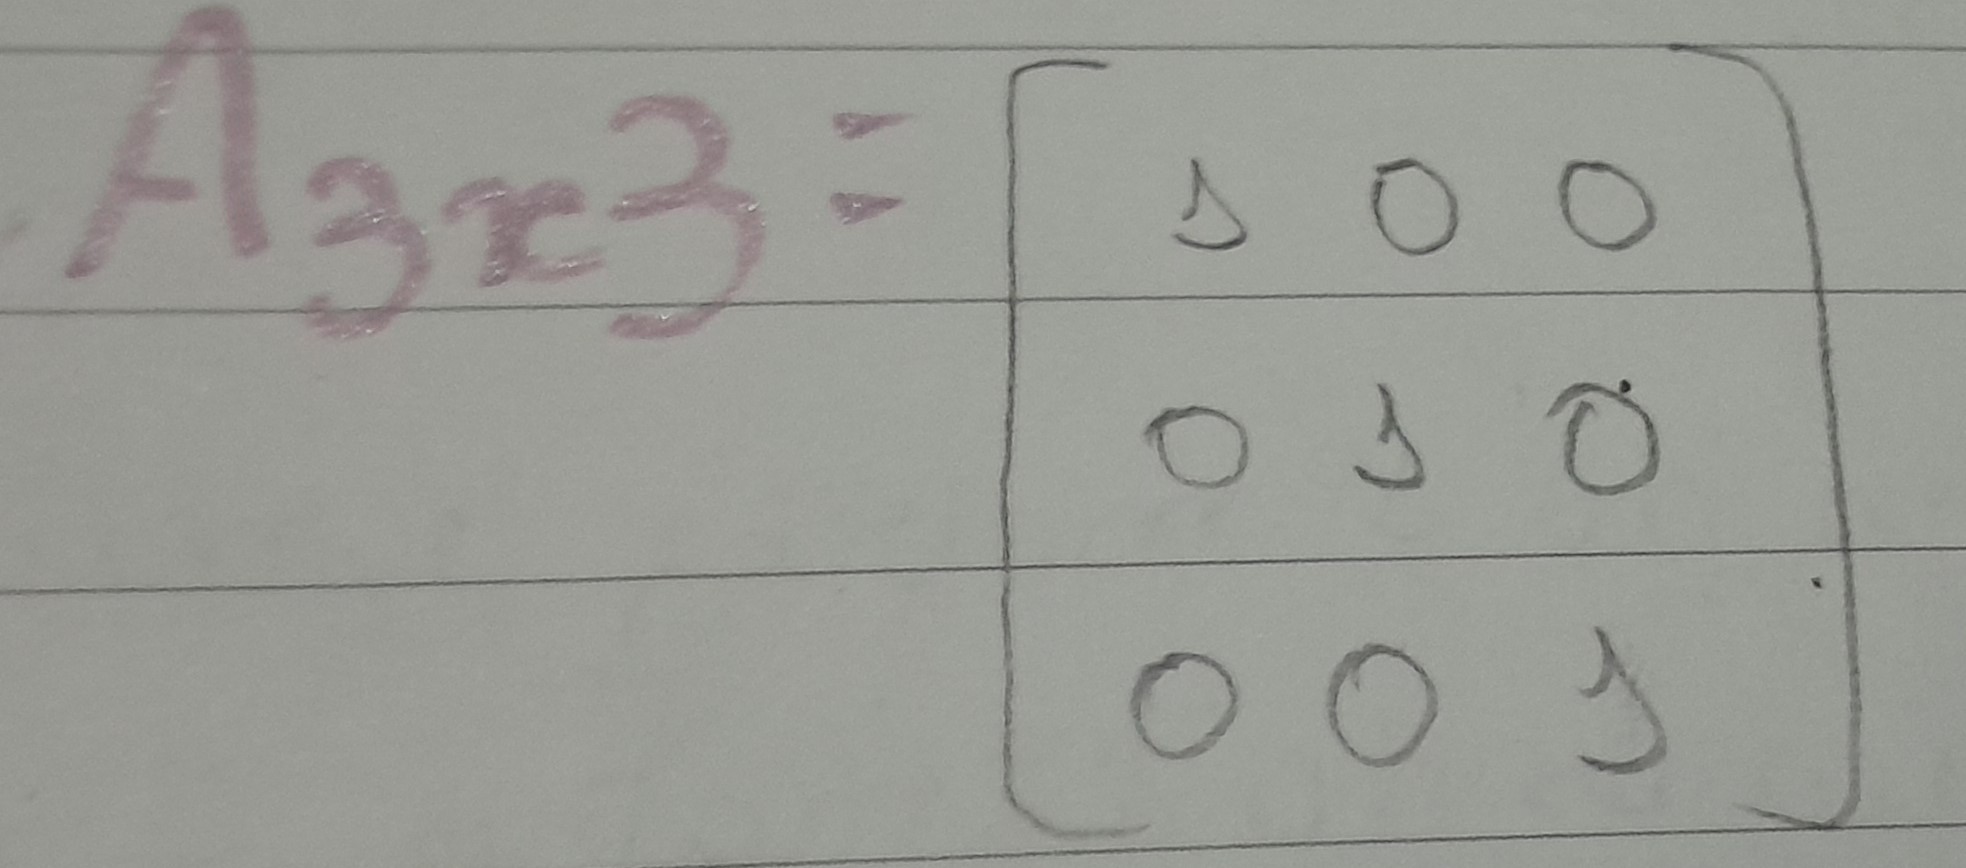 A3x3= [1 0 0
0 1 0
0 0 1]